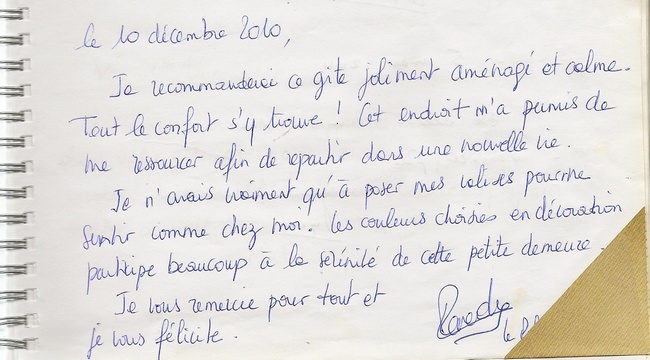 le 10 décembre 2010,
Je recommanderai ce gite joliment aménagé et calme.
Tout le confort s'y trouve ! Cet endroit m'a permis de
me ressourcer afin de repartir dans une nouvelle vie.
Je n'avais vraiment qu'à poser mes valises pour me
sentir comme chez moi. Les couleurs choisies en décoration
participe beaucoup à la sérénité de cette petite demeure.
Je vous remercie pour tout et
je vous félicite.